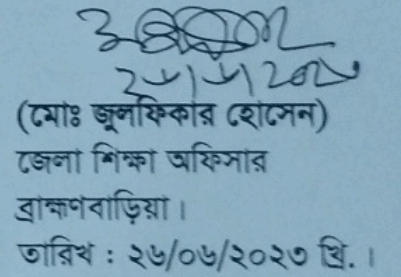 ২৬/৬/২০২৩
(মোঃ জুলফিকার হোসেন)
জেলা শিক্ষা অফিসার
ব্রাহ্মণবাড়িয়া।
তারিখ : ২৬/০৬/২০২৩ খ্রি.।